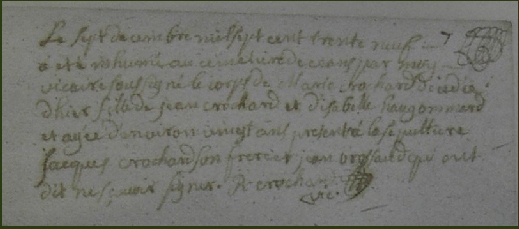 Le sept decembre mil sept cent trente neuf
a eté inhumé au cimetiere de ceans par moy
vicaire soussigné le corps de Marie Crochard decedée
d'hier fille de jean crochard et d'isabelle
et agée d'environ vingt ans present a la sepulture
jacques crochard son frere et jean qui ont
dit ne sçavoir signer. R crochard
vic.